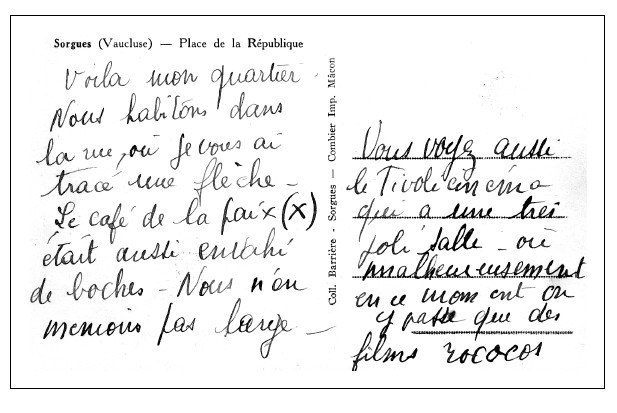 Sorgues (Vaucluse) — Place de la République
Voila mon quartier.
Nous habitons dans
la rue, où je vous ai
tracé une flèche —
Le café de la paix (x)
était aussi envahi
de boches — Nous n'en
menions pas large —
Coll. Barrière - Sorgues — Combier Imp. Mâcon
Vous voyez aussi
le Tivoli cinéma
qui a une très
joli salle — où
malheureusement
en ce moment on
y passe que des
films rococos